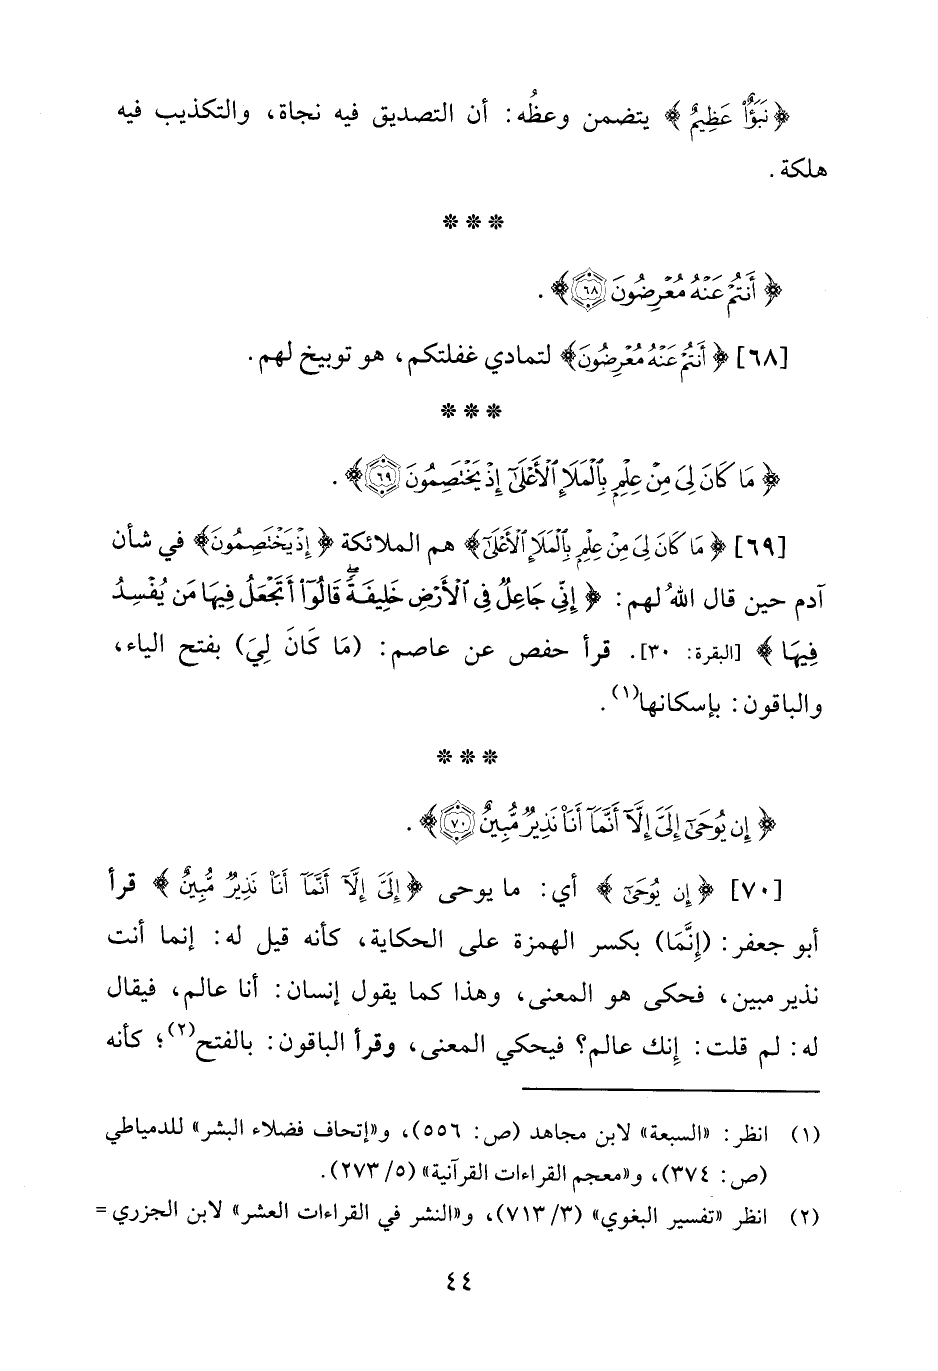 ﴿نَبَؤٌا عَظِيمٌ﴾ يتضمن وعظُه: أن التصديق فيه نجاة، والتكذيب فيه
هلكة.
* * *
﴿أَنتُمْ عَنْهُ مُعْرِضُونَ ٦٨﴾.
[٦٨] ﴿أَنتُمْ عَنْهُ مُعْرِضُونَ﴾ لتمادي غفلتكم، هو توبيخ لهم.
* * *
﴿مَا كَانَ لِيَ مِنْ عِلْمٍ بِالْمَلَإِ الْأَعْلَىٰ إِذْ يَخْتَصِمُونَ ٦٩﴾.
[٦٩] ﴿مَا كَانَ لِيَ مِنْ عِلْمٍ بِالْمَلَإِ الْأَعْلَىٰ﴾ هم الملائكة ﴿إِذْ يَخْتَصِمُونَ﴾ في شأن
آدم حين قال اللهُ لهم: ﴿إِنِّي جَاعِلٌ فِي الْأَرْضِ خَلِيفَةً ۖ قَالُوٓا أَتَجْعَلُ فِيهَا مَن يُفْسِدُ
فِيهَا﴾ [البقرة: ٣٠]. قرأ حفص عن عاصم: (مَا كَانَ لِيَ) بفتح الياء،
والباقون: بإسكانها(١).
* * *
﴿إِن يُوحَىٰٓ إِلَيَّ إِلَّآ أَنَّمَآ أَنَا۠ نَذِيرٌ مُّبِينٌ ٧٠﴾.
[٧٠] ﴿إِن يُوحَىٰٓ﴾ أي: ما يوحى ﴿إِلَيَّ إِلَّآ أَنَّمَآ أَنَا۠ نَذِيرٌ مُّبِينٌ﴾ قرأ
أبو جعفر: (إِنَّمَا) بكسر الهمزة على الحكاية، كأنه قيل له: إنما أنت
نذير مبين، فحكى هو المعنى، وهذا كما يقول إنسان: أنا عالم، فيقال
له: لم قلت: إنك عالم؟ فيحكي المعنى، وقرأ الباقون: بالفتح(٢)؛ كأنه
(١) انظر: «السبعة» لابن مجاهد (ص: ٥٥٦)، و«إتحاف فضلاء البشر» للدمياطي
(ص: ٣٧٤)، و«معجم القراءات القرآنية» (٥/ ٢٧٣).
(٢) انظر «تفسير البغوي» (٣/ ٧١٣)، و«النشر في القراءات العشر» لابن الجزري =
٤٤